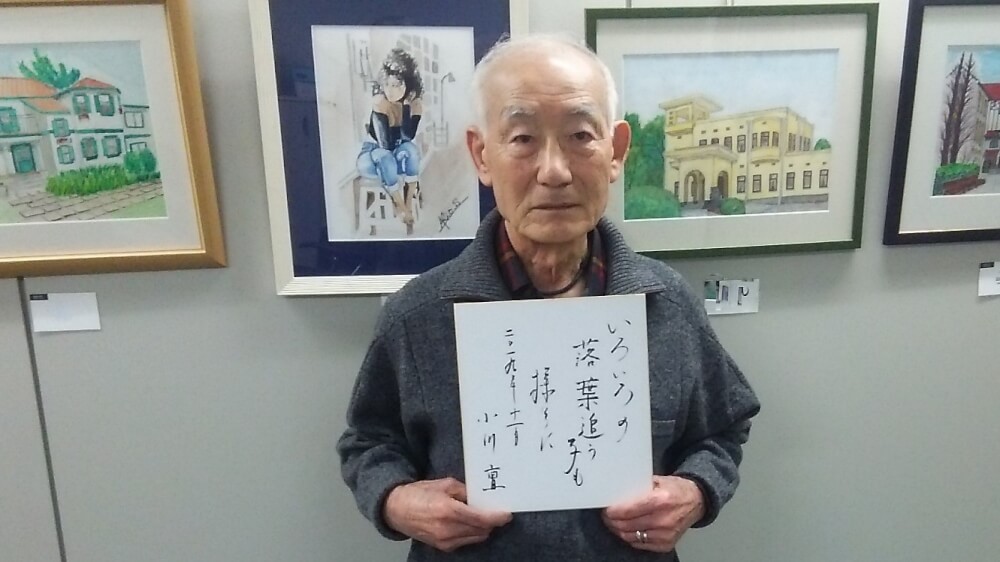 いろいろの
落葉追う子も
様々に
二〇一九年十一月
小川